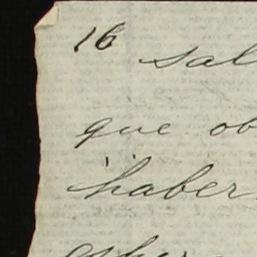 16
sal
que ob
haber